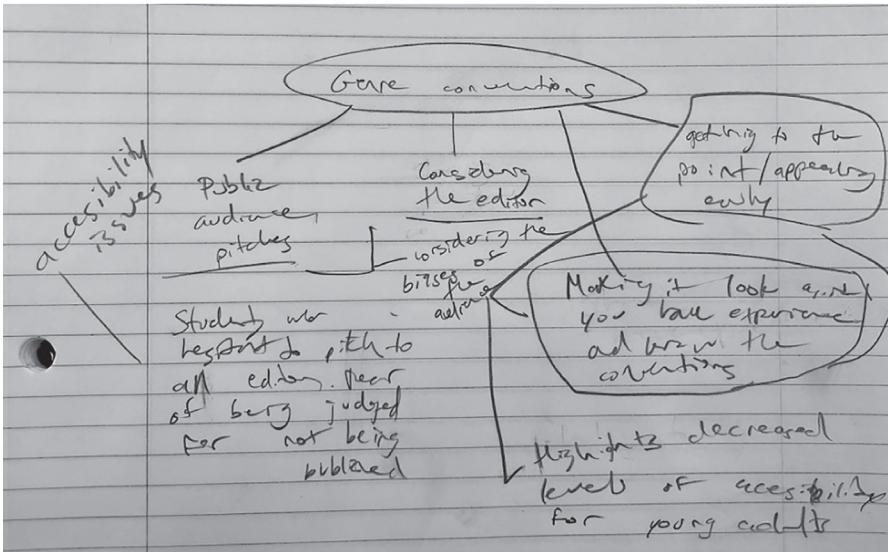 Genre conventions
accesibility
issues
Public
audience
pitches
Considering
the editor
considering the
biases of
the
audience
getting to the
point/appearing
early
Making it look as if
you have experience
and know the
conventions
Students were
hesitant to pitch to
an editor. Fear
of being judged
for not being
published
Highlights decreased
levels of accesibility
for young adults